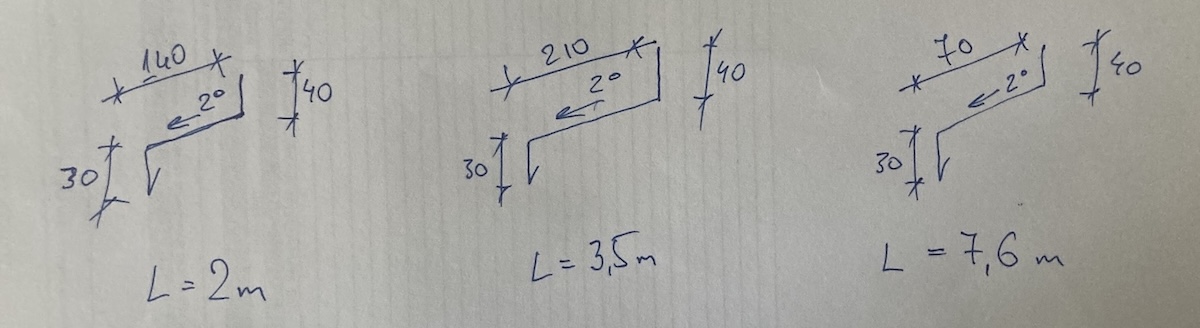 140
2°
40
30
L = 2m
210
2°
40
30
L = 3,5m
70
2°
40
30
L = 7,6 m